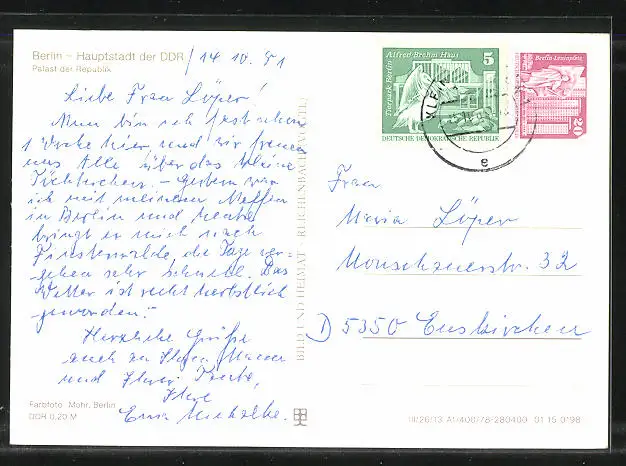 Berlin – Hauptstadt der DDR
Palast der Republik
14 10. 81
Liebe Frau Löper!
Nun bin ich fast schon
1 Woche hier, und wir freuen
uns Alle über das kleine
Töchterchen. – Gestern war
ich mit meinem Neffen
in Berlin und heute
bringt er mich nach
Finsterwalde, die Tage ver-
gehen sehr schnell. Das
Wetter ist recht herbstlich
geworden.
Herzliche Grüße
auch an Ihren Mann
und Ihre
Ihre
Farbfoto: Mohr, Berlin
DDR 0,20 M
BILD UND HEIMAT · REICHENBACH (VOGTL)
Alfred-Brehm-Haus
5
Tierpark Berlin
DEUTSCHE DEMOKRATISCHE REPUBLIK
Berlin-Leninplatz
20
KLEIN
e
Frau
Maria Löper
Monschauerstr. 32
D 5350 Euskirchen
III/26/13 A1/400/78-280400 01 15 0*98